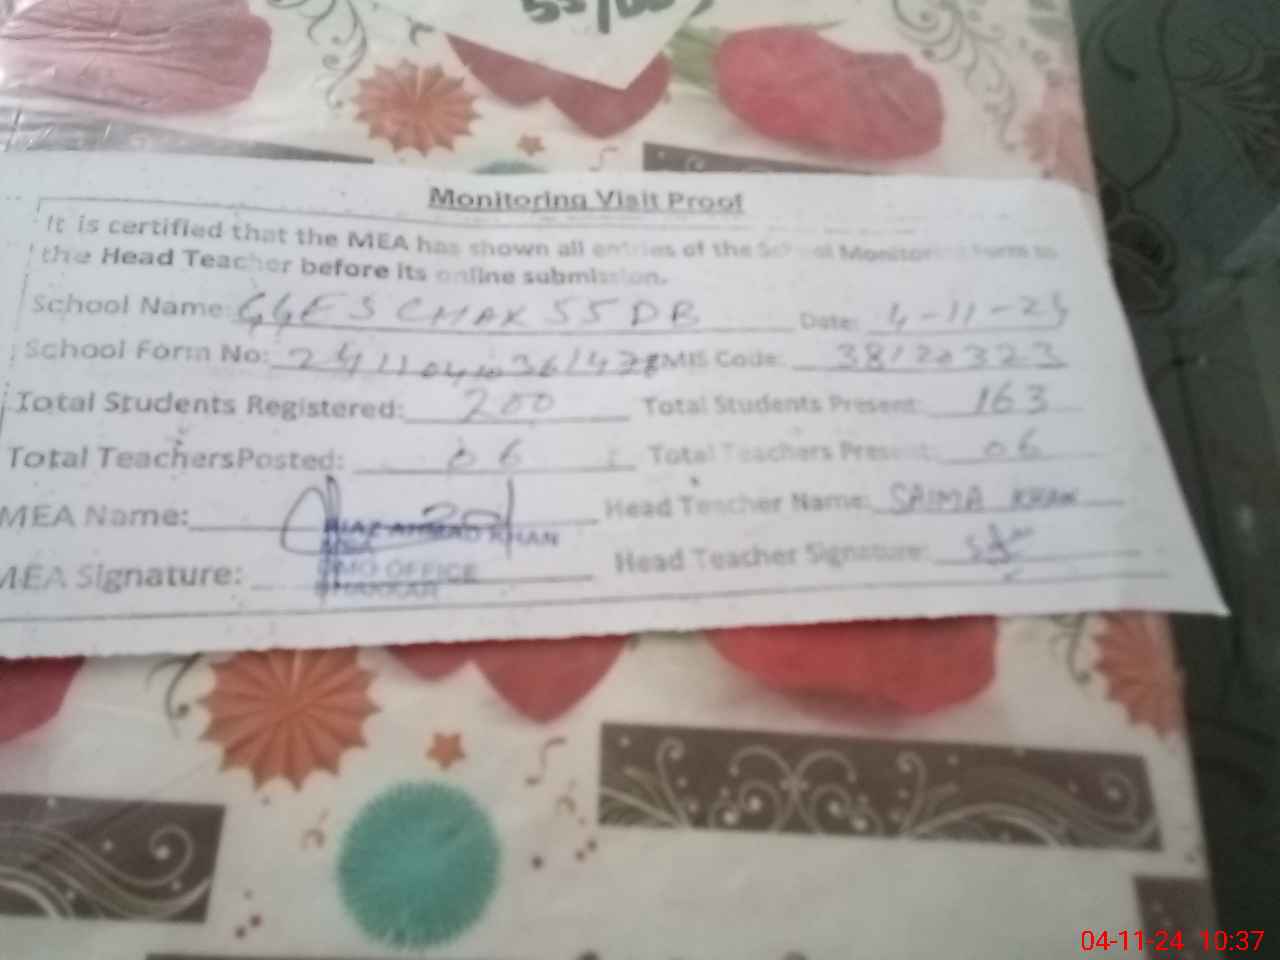 55/DB
Monitoring Visit Proof
It is certified that the MEA has shown all entries of the School Monitoring Form to
the Head Teacher before its online submission.
School Name: GGES CHAK 55 DB Date: 4-11-24
School Form No: EMIS Code: 38120323
Total Students Registered: 200 Total Students Present: 163
Total TeachersPosted: 06 Total Teachers Present: 06
MEA Name: Head Teacher Name: SAIMA KHAN
AHMAD KHAN
MEA Signature: Head Teacher Signature:
DMO OFFICE
BHAKKAR
04-11-24 10:37